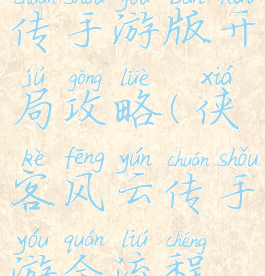 chuán shǒu yóu bǎn kāi
传手游版开
jú gōng lüè xiá
局攻略(侠
kè fēng yún chuán shǒu
客风云传手
yóu quán liú chéng
游全流程